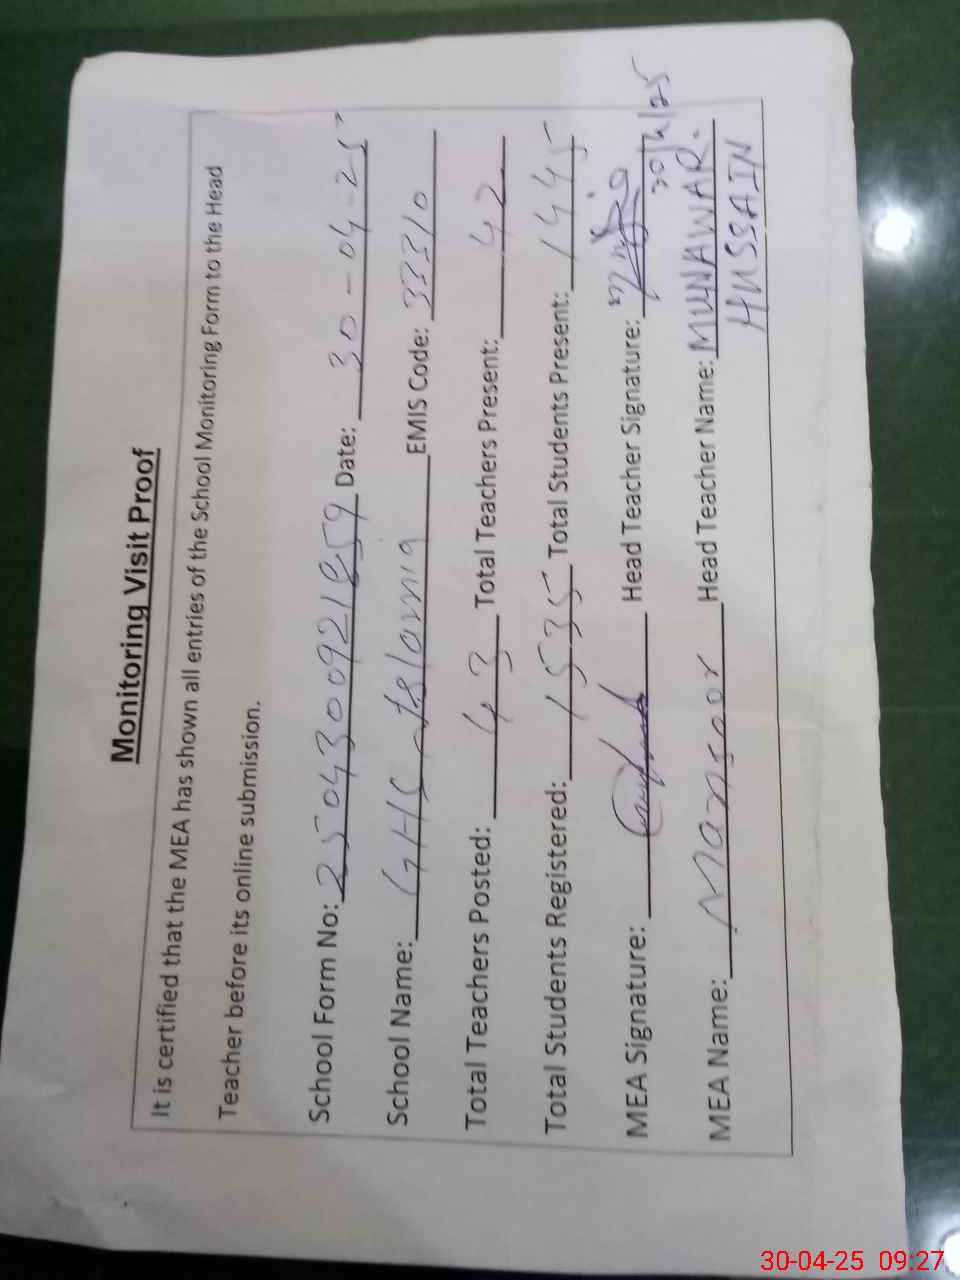 Monitoring Visit Proof
It is certified that the MEA has shown all entries of the School Monitoring Form to the Head
Teacher before its online submission.
School Form No: 2504300921859 Date: 30-04-25
School Name: GHS Islamia EMIS Code: 33310
Total Teachers Posted: 43 Total Teachers Present: 42
Total Students Registered: 1535 Total Students Present: 1445
MEA Signature: Head Teacher Signature:
30/4/25
MEA Name: Mansoor Head Teacher Name: MUNAWAR.
HUSSAIN
30-04-25 09:27